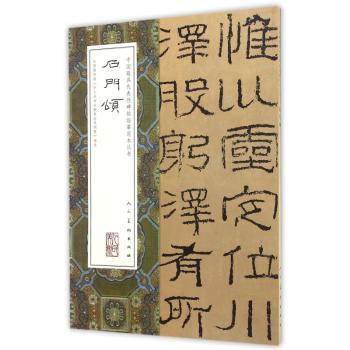 中国最具代表性碑帖临摹范本丛书
石門頌
人民美術出版社
惟巛靈定位川
澤股躬澤有所